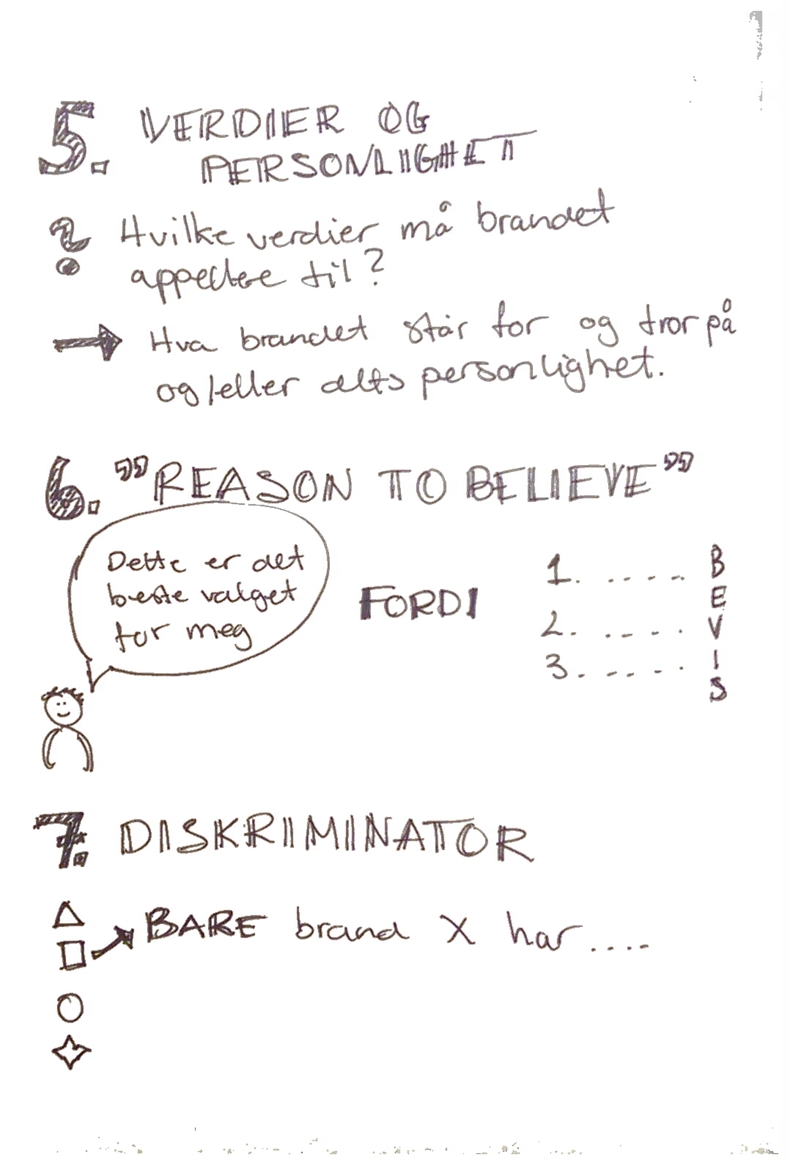 5. VERDIER OG
PERSONLIGHET
? Hvilke verdier må brandet
appellere til?
→ Hva brandet står for og tror på
og/eller dets personlighet.
6. ”REASON TO BELIEVE”
Dette er det
beste valget
for meg
FORDI
1. .....
2. ....
3. .....
BEVIS
7. DISKRIMINATOR
BARE brand X har....